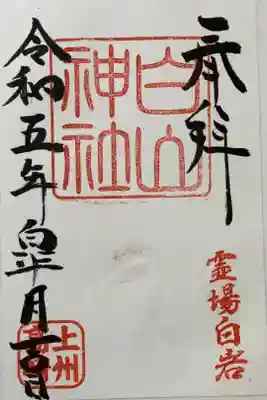 奉拝
白山
神社
霊場白岩
令和五年皐月吉日
上州